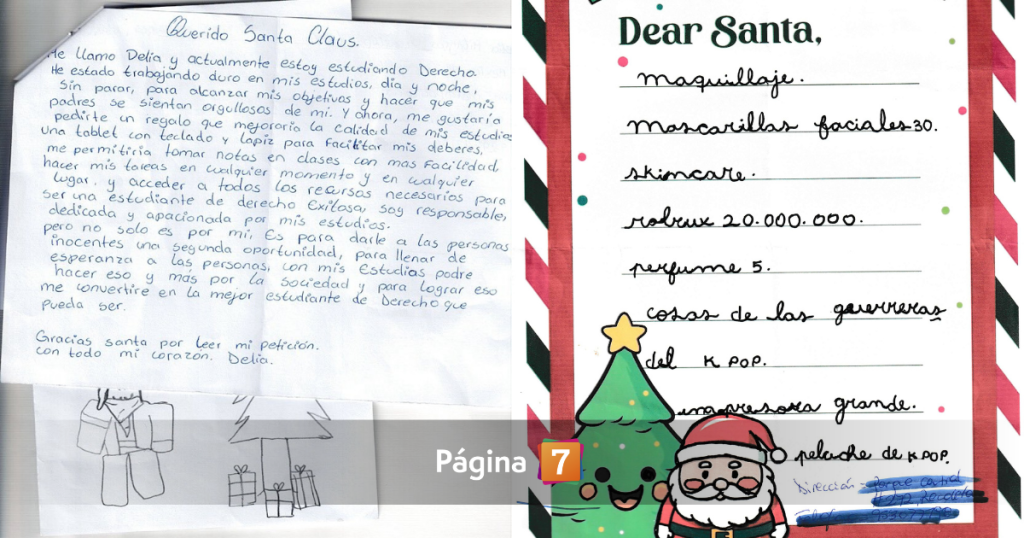 Querido Santa Claus.
Me llamo Delia y actualmente estoy estudiando Derecho.
He estado trabajando duro en mis estudios, día y noche,
sin parar, para alcanzar mis objetivos y hacer que mis
padres se sientan orgullosos de mi. Y ahora, me gustaría
pedirte un regalo que mejoraría la calidad de mis estudios
una tablet con teclado y lápiz para facilitar mis deberes.
me permitiria tomar notas en clases con mas facilidad,
hacer mis tareas en cualquier momento y en cualquier
lugar. y acceder a todos los recursos necesarios para
ser una estudiante de derecho Exitosa, soy responsable,
dedicada y apacionada por mis estudios.
pero no solo es por mi, Es para darle a las personas
inocentes una segunda oportunidad, para llenar de
esperanza a las personas, con mis Estudios podre
hacer eso y más por la sociedad y para lograr eso
me convertire en la mejor estudiante de Derecho que
pueda ser.
Gracias santa por leer mi petición.
con todo mi corazón. Delia.
Dear Santa,
maquillaje.
Mascarillas faciales 30.
skimcare.
robux 20.000.000.
perfume 5.
cosas de las guerreras
del K POP.
impresora grande.
peluche de K POP.
Dirección
Página 7